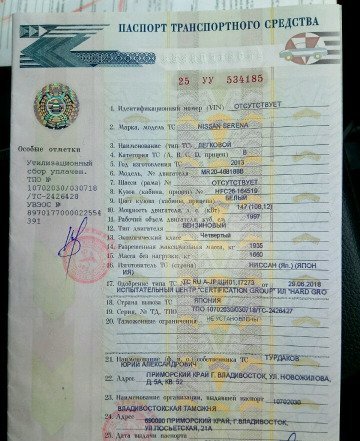 ПАСПОРТ ТРАНСПОРТНОГО СРЕДСТВА
25 УУ 534185
1. Идентификационный номер (VIN) ОТСУТСТВУЕТ
2. Марка, модель ТС NISSAN SERENA
3. Наименование (тип ТС) ЛЕГКОВОЙ
4. Категория ТС (A, B, C, D, прицеп) B
5. Год изготовления ТС 2013
6. Модель, № двигателя MR20-446188B
7. Шасси (рама) № ОТСУТСТВУЕТ
8. Кузов (кабина, прицеп) № HFC26-164519
9. Цвет кузова (кабины, прицепа) БЕЛЫЙ
10. Мощность двигателя, л. с. (кВт) 147 (108.12)
11. Рабочий объем двигателя, куб. см 1997
12. Тип двигателя БЕНЗИНОВЫЙ
13. Экологический класс Четвертый
14. Разрешенная максимальная масса, кг 1935
15. Масса без нагрузки, кг 1660
16. Изготовитель ТС (страна) НИССАН (Яп.) (ЯПОН
ИЯ)
17. Одобрение типа ТС № ТС RU 29.06.2018
ИСПЫТАТЕЛЬНЫЙ ЦЕНТР "CERTIFICATION GROUP" ИЛ "HARD GRO
18. Страна вывоза ТС ЯПОНИЯ
19. Серия, № ТД, ТПО ТПО 10702030/030718/ТС-2426427
20. Таможенные ограничения НЕ УСТАНОВЛЕНЫ
21. Наименование (ф. и. о.) собственника ТС ТУРДАКОВ
ЮРИЙ АЛЕКСАНДРОВИЧ
22. Адрес ПРИМОРСКИЙ КРАЙ Г. ВЛАДИВОСТОК, УЛ. НОВОЖИЛОВА,
Д. 5А, КВ. 52
23. Наименование организации, выдавшей паспорт 10702030
ВЛАДИВОСТОКСКАЯ ТАМОЖНЯ
24. Адрес 690090 ПРИМОРСКИЙ КРАЙ, Г. ВЛАДИВОСТОК,
УЛ. ПОСЬЕТСКАЯ, 21А
25. Дата выдачи паспорта
Особые отметки
Утилизационный
сбор уплачен.
ТПО №
10702030/030718
/ТС-2426428
УВЭОС №
8970177000022554
391